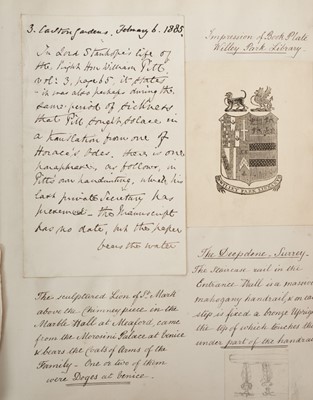 3. Carlton Gardens, February 6. 1885
In Lord Stanhope's life of
the Right Hon: William Pitt
vol: 3, page 65, it states
- it was also perhaps during the
same period of sickness
that Pitt sought solace in
a translation from one of
Horace's Odes. Here is one
paraphrased, as follows, in
Pitt's own handwriting, which his
last private Secretary has
preserved - the Manuscript
has no date, but the paper
bears the water
Impression of Book Plate
Willey Park Library.
WILLEY PARK LIBRARY
The sculptured Lion of St. Mark
above the Chimney piece, in the
Marble Hall at Meaford, came
from the Morosini Palace at Venice
& bears the Coats of Arms of the
Family - One or two of them
were Doges at Venice.
The Deepdene. Surrey.
The Staircase rail in the
Entrance Hall is a massive
mahogany handrail, & on each
step is fixed a bronze Upright
the tip of which touches the
under part of the handrail